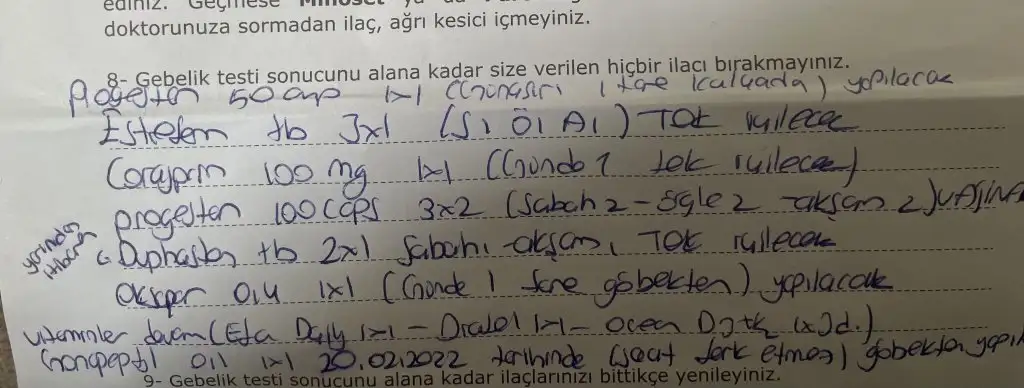 ediniz. Geçmese Minoset ya da
doktorunuza sormadan ilaç, ağrı kesici içmeyiniz.
8- Gebelik testi sonucunu alana kadar size verilen hiçbir ilacı bırakmayınız.
Progesten 50 amp 1x1 (Günaşırı 1 tane kalçada) yapılacak
Estrefem tb 3x1 (S1 Ö1 A1) TOK içilecek
Coraspirin 100 mg 1x1 (Günde 1 tek içilecek)
progesten 100 caps 3x2 (Sabah 2 - öğle 2 akşam 2)
yarından itibaren Duphaston tb 2x1 Sabah 1 akşam 1 TOK içilecek
Oksapar 0,4 1x1 (Günde 1 tane göbekten) yapılacak
Vitaminler devam (Eta Daily 1x1 - 1x1 - Ocean
0,1 1x1 20.02.2022 tarihinde (saat fark etmez) göbekten
9- Gebelik testi sonucunu alana kadar ilaçlarınızı bittikçe yenileyiniz.